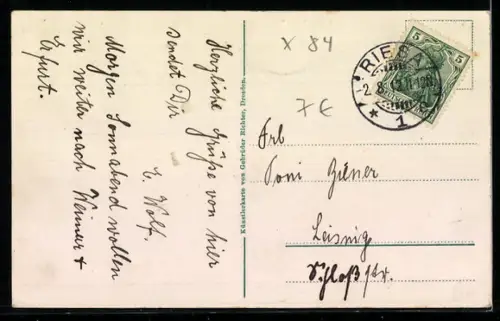 Herzliche Grüße von hier
sendet Dir
E. Wolf.
Morgen Sonnabend wollen
wir weiter nach Weimar +
Erfurt.
Künstlerkarte von Gebrüder Richter, Dresden.
x 84
7€
5 5
RIESA
1
Frl
Toni
Leisnig
Schloßstr.